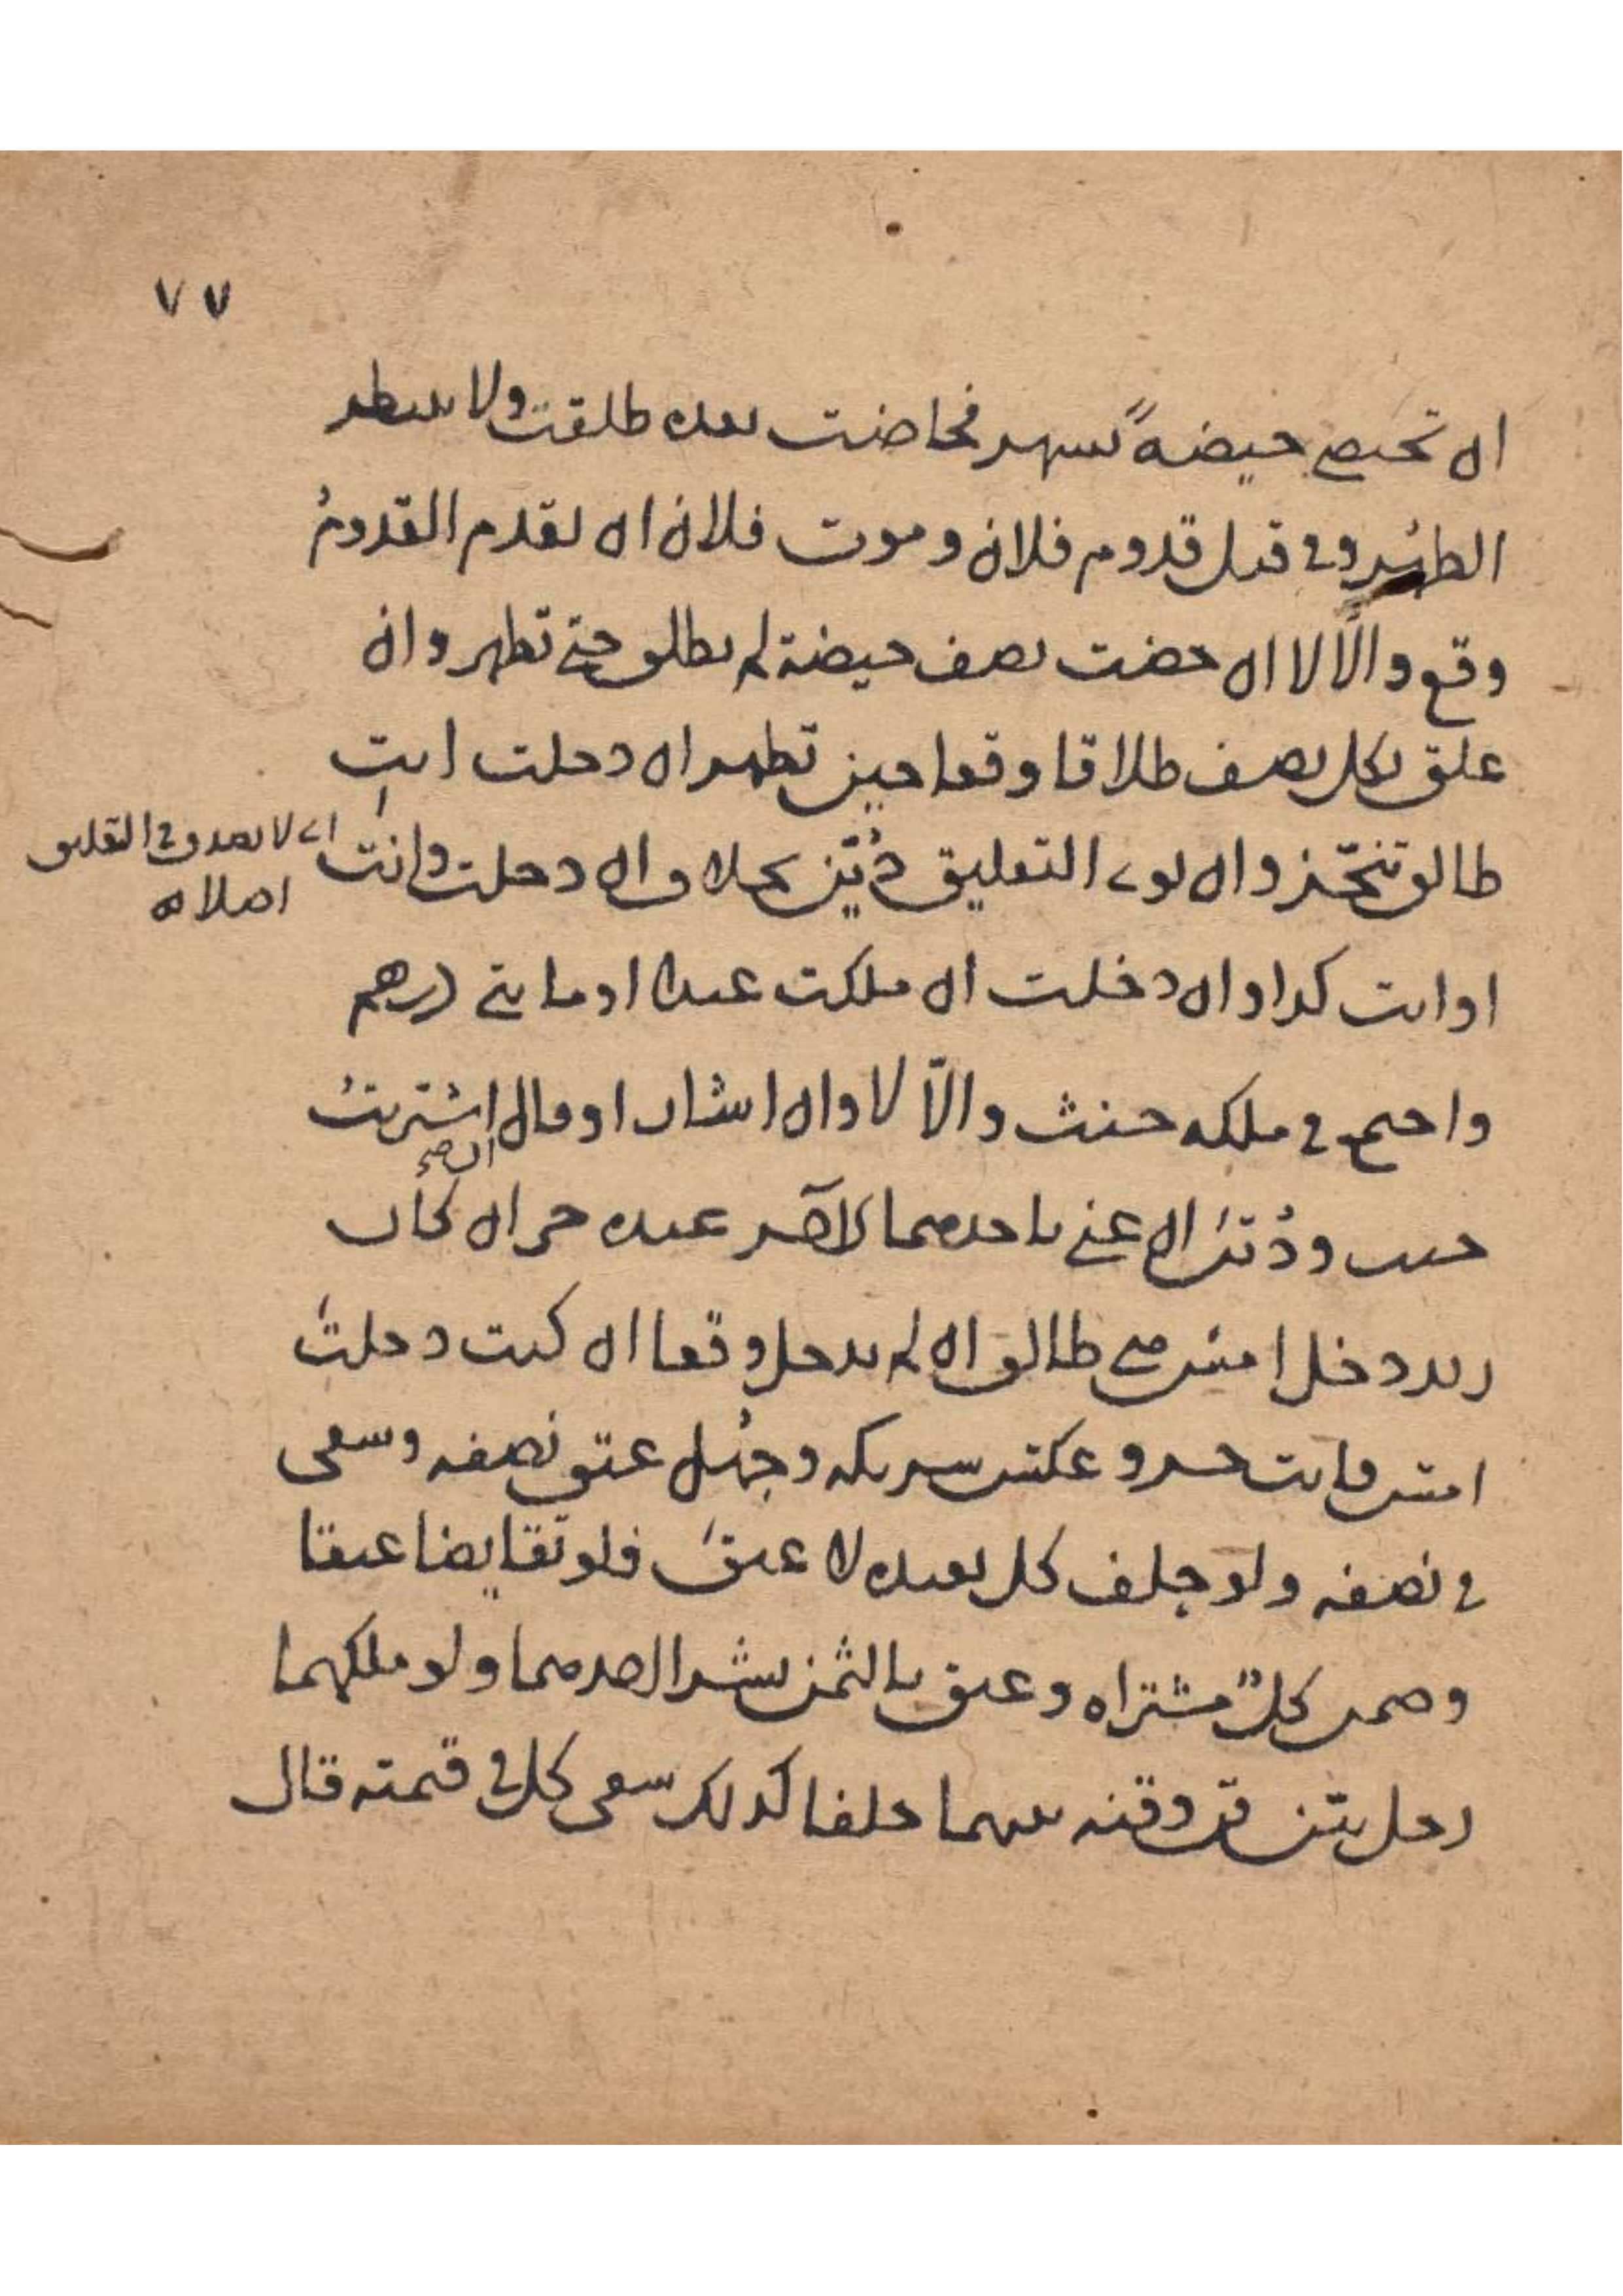 ٧٧
ان تحيض حيضةً بشهر فحاضت بعده طلقت ولا ينتظر
الطهر وفي قبل قدوم فلان وموت فلان ان تقدم القدومُ
وقع والّا لا ان حضت نصف حيضة لم تطلق حتى تطهر وان
علق بكل نصف طلاقا وقعا حين تطهر ان دخلت انت
طالق تنجّز وان نوى التعليق دُيّن بخلاف ان دخلت وانت
اي لا يصدق في التعليق
اصلا اه
او انت كذا وان دخلت ان ملكت عبدا او مايتي درهم
واجتمع في ملكه حنث والّا لا وان اشار او قال اشتريتُ
حنث ودُيّن ان عنى باحدهما كالآخر عبده حر ان كان
زيد دخل امس هي طالق ان لم يدخل وقعا ان كنت دخلت
امس فانت حر وعكس شريكه وجُهل عتق نصفه وسعى
في نصفه ولو حلف كل بعبده لا عتق فلو تقايضا عتقا
وضمن كلٌّ مشتراه وعتق بالثمن بشرا احدهما ولو ملكهما
رجل بين قن وقنه بينهما حلفا كذلك سعى كل في قيمته قال